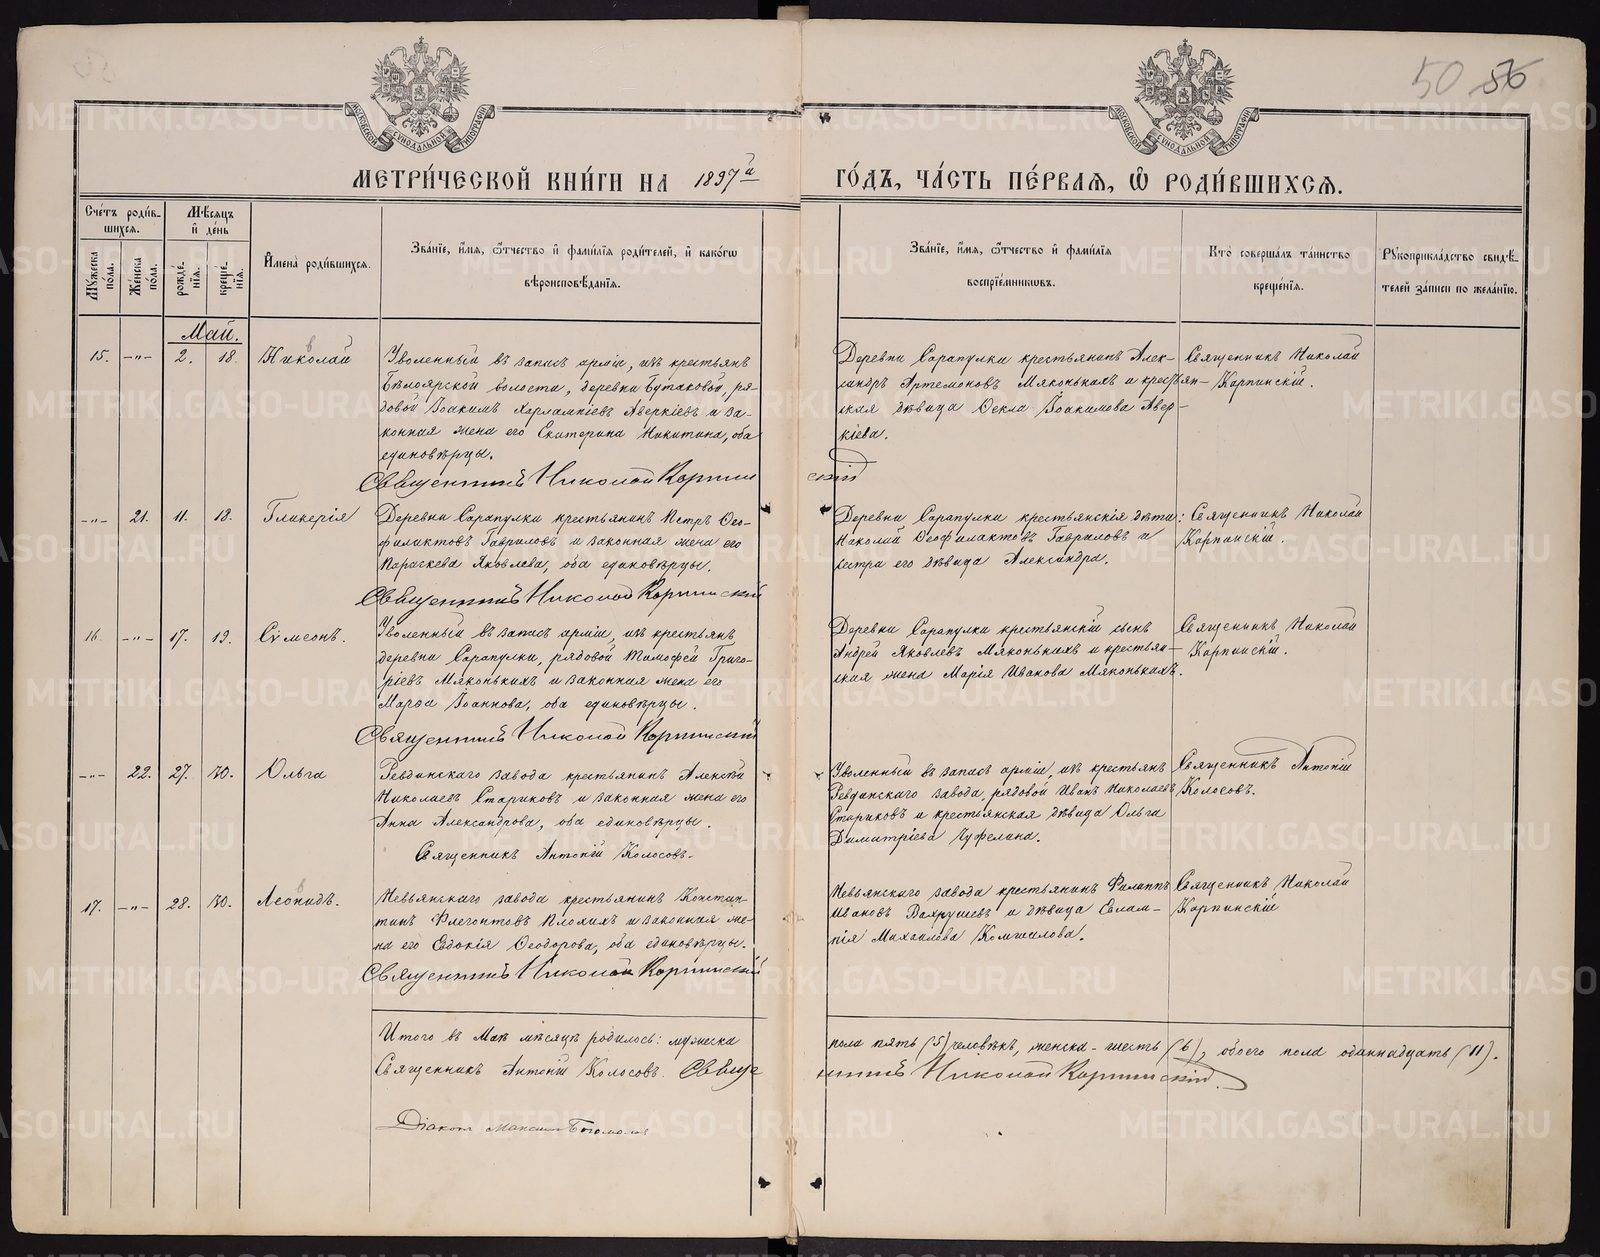 50 36
МЕТРИ́ЧЕСКОЙ КНИ́ГИ НА 1897й ГО́ДЪ, ЧА́СТЬ ПЕ́РВАЯ, Ѽ РОДИ́ВШИХСЯ.
Сче́тъ роди́в-
шихся.
Мꙋжеска по́ла.
Же́нска по́ла.
Мѣ́сяцъ и҆ де́нь
рожде́-
нія.
креще́-
нія.
И҆мена̀ роди́вшихся.
Зва́ніе, и҆́мя, ѻ҆́тчество и҆ фами́лія роди́телей, и҆ како́гѡ
вѣроисповѣ́данія.
Зва́ніе, и҆́мя, ѻ҆́тчество и҆ фами́лія
воспріе́мникѡвъ.
Кто̀ соверша́лъ та́инство
креще́нія.
Рꙋкоприкла́дство свидѣ́-
телей за́писи по жела́нію.
Май.
15. —"— 2. 18. Николай
Уволенный въ запасъ арміи, изъ крестьянъ
Бѣлоярской волости, деревни Бутаковой, ря-
довой Іоакимъ Харлампіевъ Аверкіевъ и за-
конная жена его Екатерина Никитина, оба
единовѣрцы.
Деревни Сарапулки крестьянинъ Алек-
сандръ Артемоновъ Мяконькихъ и крестьян-
ская дѣвица Ѳекла Іоакимова Авер-
кіева.
Священникъ Николай
Карпинскій.
Священникъ Николай Карпинскій
—"— 21. 11. 18. Гликерія
Деревни Сарапулки крестьянинъ Петръ Ѳео-
филактовъ Гавриловъ и законная жена его
Параскева Яковлева, оба единовѣрцы.
Деревни Сарапулки крестьянскія дѣти:
Николай Ѳеофилактовъ Гавриловъ и
сестра его дѣвица Александра.
Священникъ Николай
Карпинскій.
Священникъ Николай Карпинскій
16. —"— 17. 19. Сѵмеонъ.
Уволенный въ запасъ арміи, изъ крестьянъ
деревни Сарапулки, рядовой Тимофей Григо-
ріевъ Мяконькихъ и законная жена его
Марѳа Іоаннова, оба единовѣрцы.
Деревни Сарапулки крестьянскій сынъ
Андрей Яковлевъ Мяконькихъ и крестьян-
ская жена Марія Иванова Мяконькихъ.
Священникъ Николай
Карпинскій.
Священникъ Николай Карпинскій
—"— 22. 27. 30. Ольга
Ревдинскаго завода крестьянинъ Алексѣй
Николаевъ Стариковъ и законная жена его
Анна Александрова, оба единовѣрцы.
Священникъ Антоній Колосовъ.
Уволенный въ запасъ арміи, изъ крестьянъ
Ревдинскаго завода, рядовой Иванъ Николаевъ
Стариковъ и крестьянская дѣвица Ольга
Димитріева Чуфелина.
Священникъ Антоній
Колосовъ.
17. —"— 28. 30. Леонидъ.
Невьянскаго завода крестьянинъ Констан-
тинъ Флегонтовъ Плохихъ и законная же-
на его Евдокія Ѳеодорова, оба единовѣрцы.
Невьянскаго завода крестьянинъ Филиппъ
Ивановъ Вахрушевъ и дѣвица Евлам-
пія Михаилова Комшилова.
Священникъ Николай
Карпинскій
Священникъ Николай Карпинскій
Итого въ Маѣ мѣсяцѣ родилось: мужеска пола пять (5) человѣкъ, женска - шесть (6), обоего пола одиннадцать (11).
Священникъ Антоній Колосовъ. Священникъ Николай Карпинскій.
Діаконъ Максимъ
METRIKI.GASO-URAL.RU